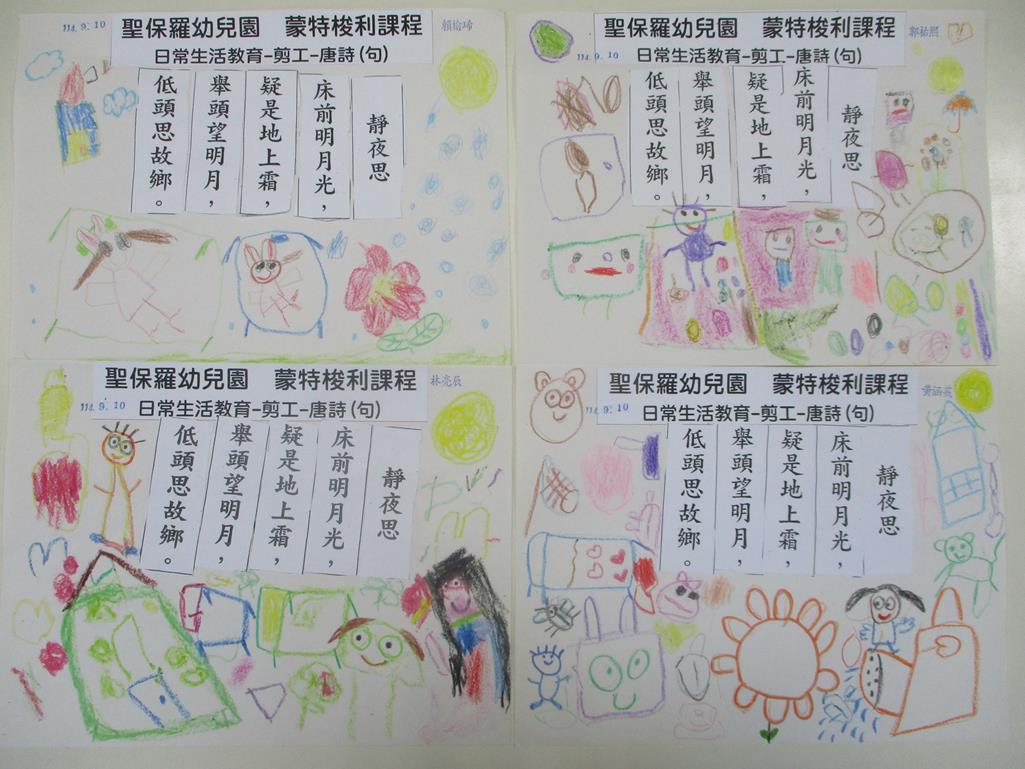 114. 9. 10
聖保羅幼兒園 蒙特梭利課程
日常生活教育–剪工–唐詩(句)
靜夜思
床前明月光，
疑是地上霜，
舉頭望明月，
低頭思故鄉。
114. 9. 10
聖保羅幼兒園 蒙特梭利課程
日常生活教育–剪工–唐詩(句)
靜夜思
床前明月光，
疑是地上霜，
舉頭望明月，
低頭思故鄉。
114. 9. 10
聖保羅幼兒園 蒙特梭利課程
林亮辰
日常生活教育–剪工–唐詩(句)
靜夜思
床前明月光，
疑是地上霜，
舉頭望明月，
低頭思故鄉。
114. 9. 10
聖保羅幼兒園 蒙特梭利課程
日常生活教育–剪工–唐詩(句)
靜夜思
床前明月光，
疑是地上霜，
舉頭望明月，
低頭思故鄉。